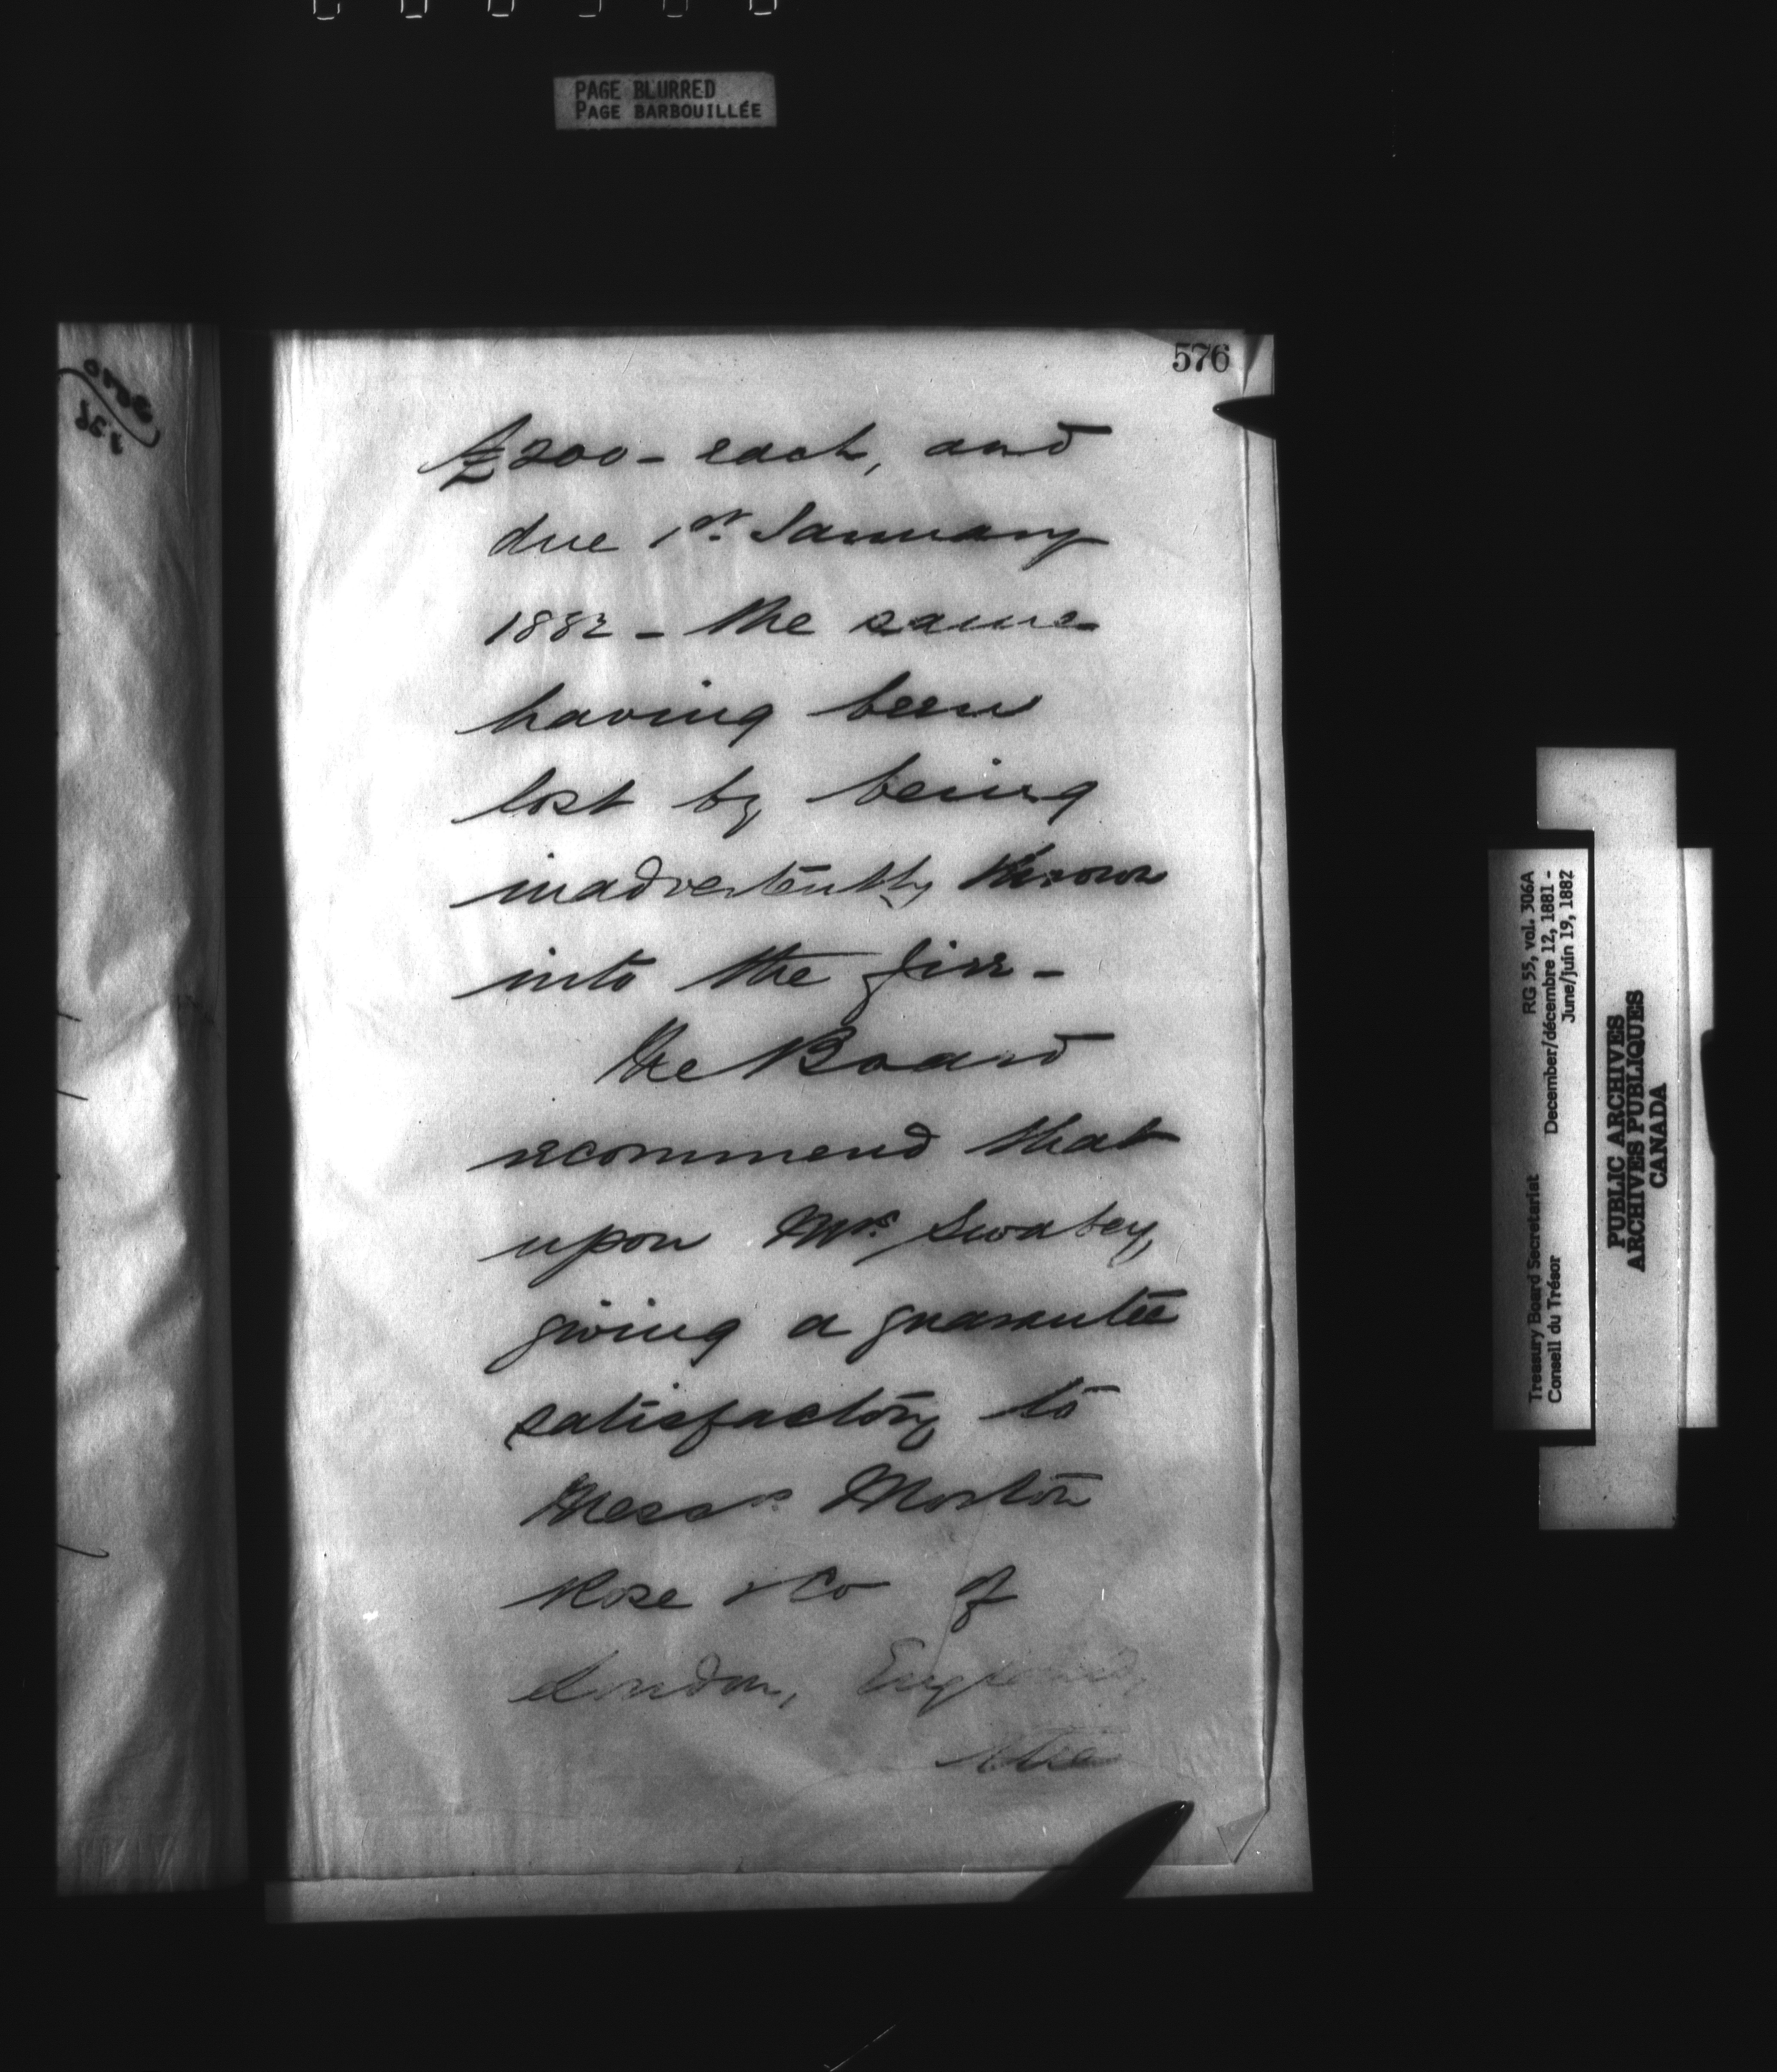 PAGE BLURRED
PAGE BARBOUILLÉE
576
£200 - each, and
due 1st. January
1882 - the same
having been
lost by being
inadvertently thrown
into the fire -
The Board
recommend that
upon Mr. Swabey,
giving a guarantee
satisfactory to
Messrs. Morton
Rose & Co of
London, England,
the
Treasury Board Secretariat RG 55, vol. 306A
Conseil du Trésor December/décembre 12, 1881 -
June/juin 19, 1882
PUBLIC ARCHIVES
ARCHIVES PUBLIQUES
CANADA